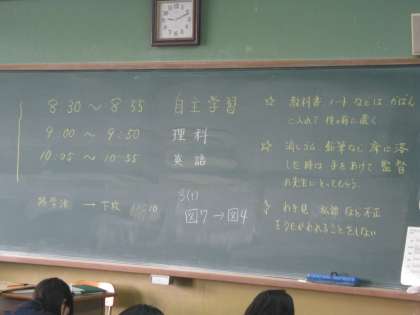 8:30 ～ 8:55 自主学習
9:00 ～ 9:50 理科
10:05 ～ 10:55 英語
→ 下校
3(1)
図7 → 図4
☆ 教科書 ノート などは かばん
に入れて 
☆ 消しゴム 鉛筆など 床に落
した時は 手をあけて 監督
の先生にとってもらう
☆ わき見 私語 など不正
をうたがわれることをしない